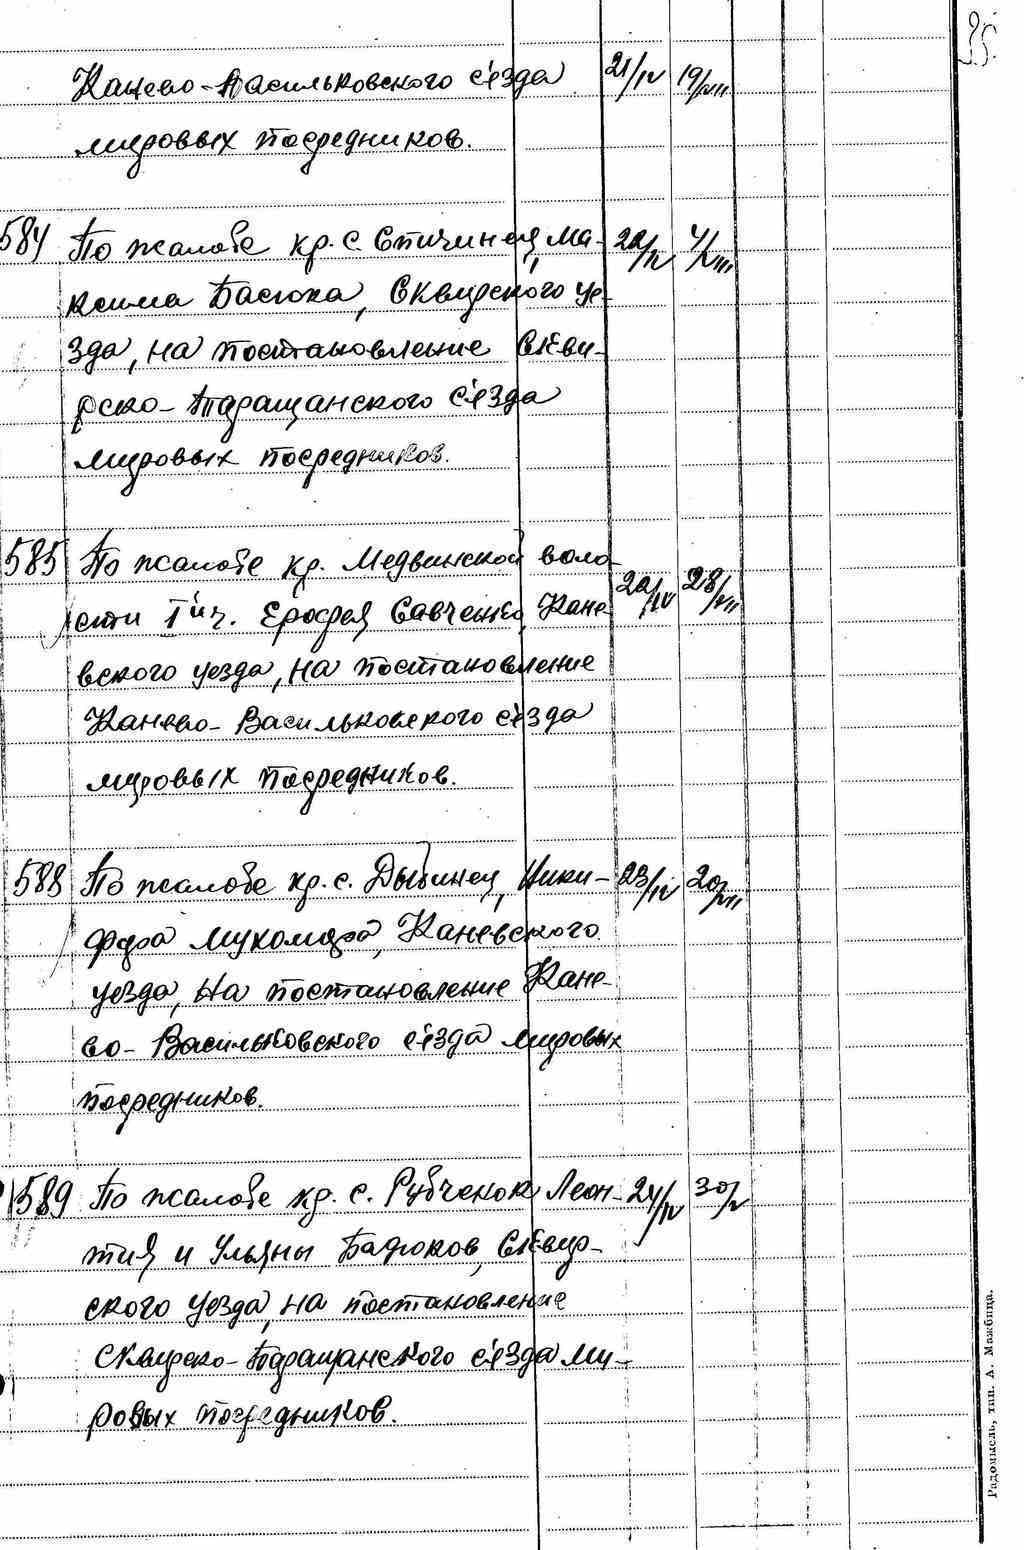 85.
Канево-Васильковского с'езда 21/IV 19/VIII
мировых посредников.
584 По жалобе кр. с. Спичинец, Ма- 22/IV 4/VIII
ксима Басюка, Сквирского уе-
зда, на постановление Скви-
рско-Таращанского с'езда
мировых посредников.
585 По жалобе кр. Медвинской воло-
сти I'й ч. Ерофея Савченко, Кане- 22/IV 28/VII
вского уезда, на постановление
Канево-Васильковского с'езда
мировых посредников.
588 По жалобе кр. с. Дыбинец, Ники- 23/IV 20/VII
фора Мухомора, Каневского
уезда, на постановление Кане-
во-Васильковского с'езда мировых
посредников.
589 По жалобе кр. с. Рубченок Леон- 24/IV 30/V
тия и Ульяны Бадюков, Сквир-
ского уезда, на постановление
Сквирско-Таращанского с'езда ми-
ровых посредников.
Радомысль, тип. А. Мажбица.